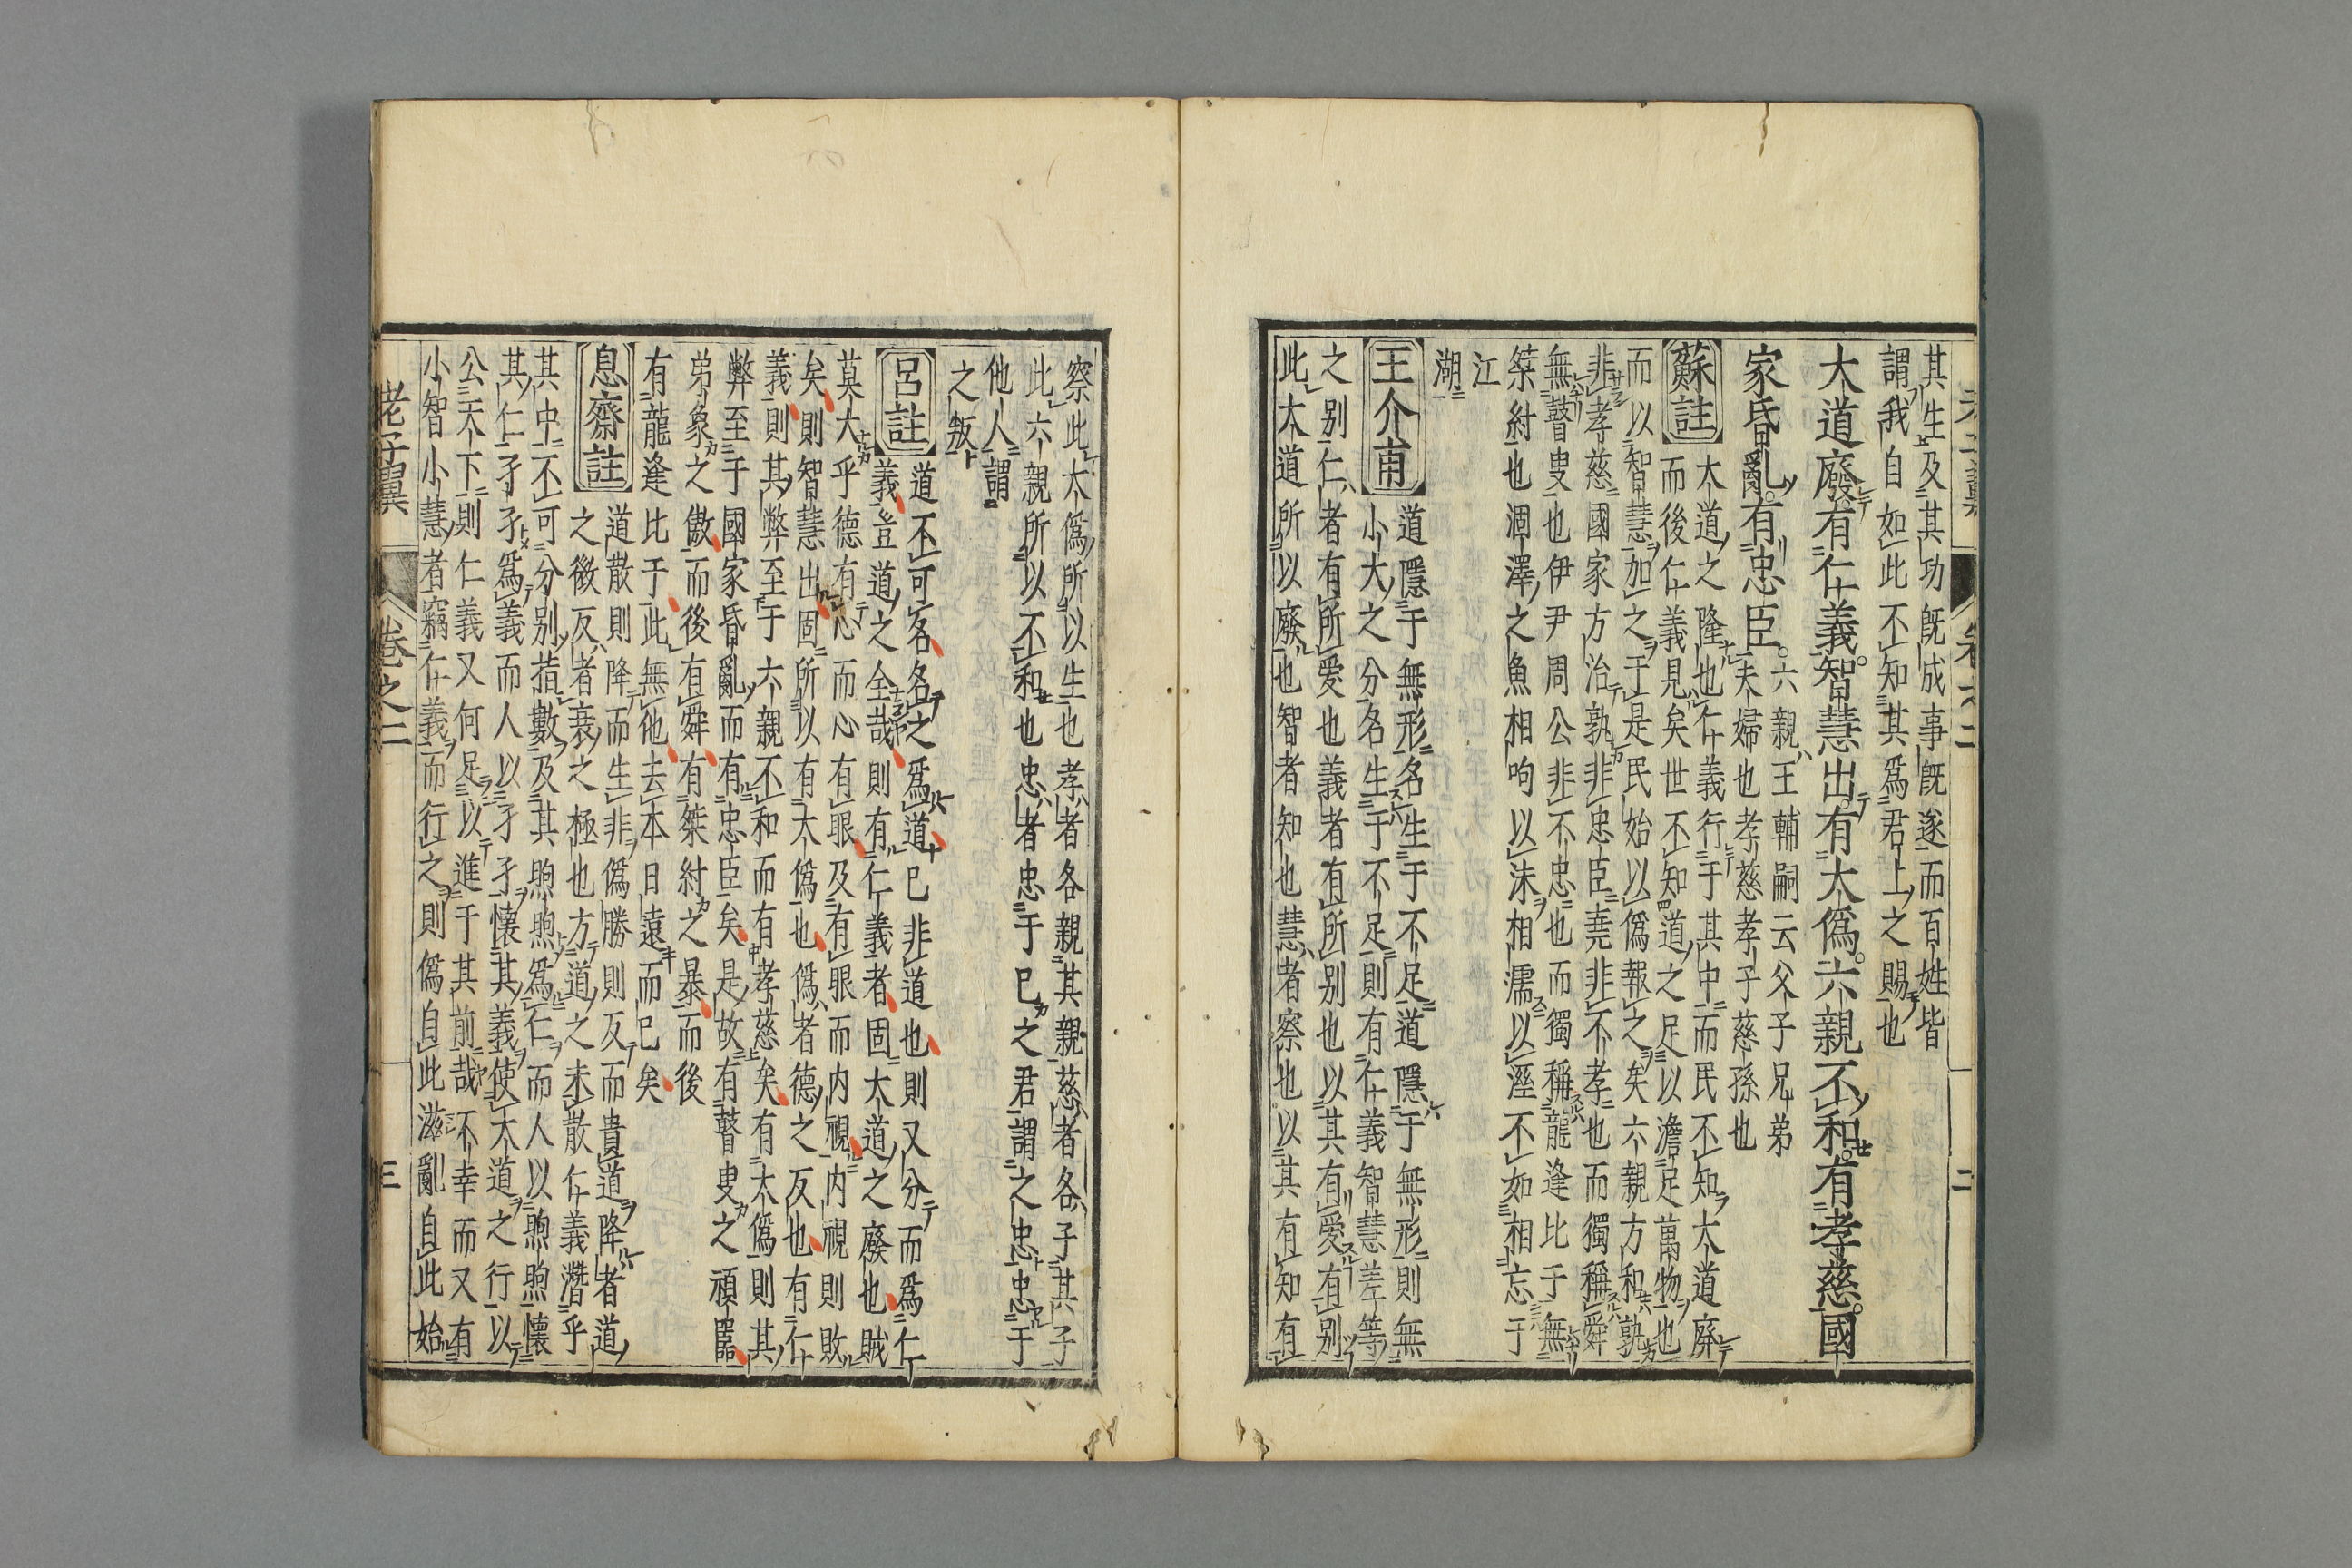 其生及其功旣成事旣遂而百姓皆
謂我自如此不知其爲君上之賜也
大道廢有仁義智慧出有大偽六親不和有孝慈國
家昏亂有忠臣
六親王輔嗣云父子兄弟
夫婦也孝慈孝子慈孫也
蘇註
大道之隆也仁義行于其中而民不知大道廢
而後仁義見矣世不知道之足以澹足萬物也
而以智慧加之于是民始以偽報之矣六親方和孰
非孝慈國家方治孰非忠臣堯非不孝也而獨稱舜
無瞽叟也伊尹周公非不忠也而獨稱龍逢比于無
桀紂也涸澤之魚相呴以沫相濡以溼不如相忘于
江
湖
王介甫
道隱于無形名生于不足道隱于無形則無
小大之分名生于不足則有仁義智慧差等
之別仁者有所愛也義者有所別也以其有愛有別
此大道所以廢也智者知也慧者察也以其有知有
察此大偽所以生也孝者各親其親慈者各子其子
此六親所以不和也忠者忠于已之君謂之忠忠于
他人謂
之叛
呂註
道不可名名之爲道已非道也則又分而爲仁
義豈道之全哉則有仁義者固大道之廢也賊
莫大乎德有心而心有眼及有眼而内視内視則敗
矣則智慧出固所以有大偽也偽者德之反也有仁
義則其弊至于六親不和而有孝慈矣有大偽則其
弊至于國家昏亂而有忠臣矣是故有瞽叟之頑嚚
弟象之傲而後有舜有桀紂之暴而後
有龍逢比于此無他去本日遠而已矣
息齋註
道散則降而生非偽勝則反而貴道降者道
之微反者衰之極也方道之未散仁義潛乎
其中不可分別指數及其煦煦爲仁而人以煦煦懷
其仁孑孑爲義而人以孑孑懷其義使大道之行以
公天下則仁義又何足以進于其前哉不幸而又有
小智小慧者竊仁義而行之則偽自此滋亂自此始
老子翼
卷之二
三